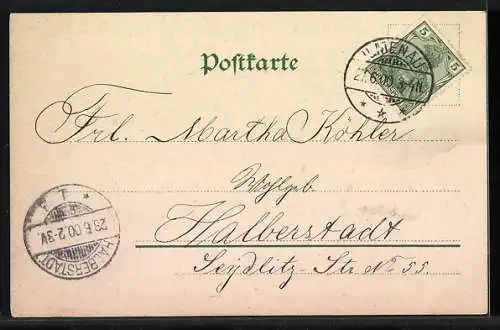 Postkarte
ILMENAU
5
5
Frl. Martha Köhler
Wohlgeb.
Halberstadt
Seydlitz-Str. No 55.
HALBERSTADT
28.6.00.2-3V.